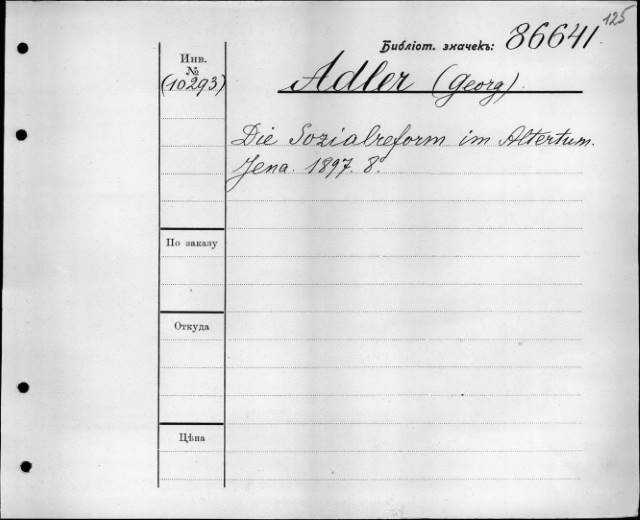 125
Библіот. значекъ: 86641
Инв.
№
(10293)
Adler (Georg).
Die Sozialreform im Altertum.
Jena. 1897. 8°
По заказу
Откуда
Цѣна